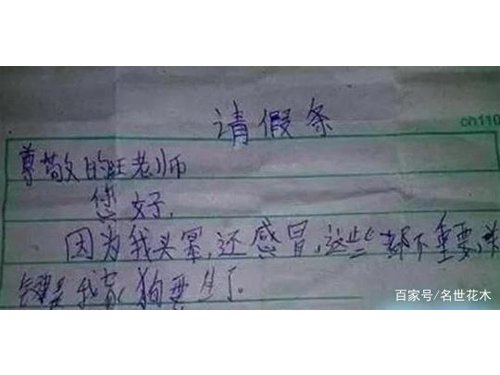 请假条
cn110
尊敬的旺老师
您好,
因为我头晕,还感冒,这些都不重要,
关键是我家狗要生了。
百家号/名世花木